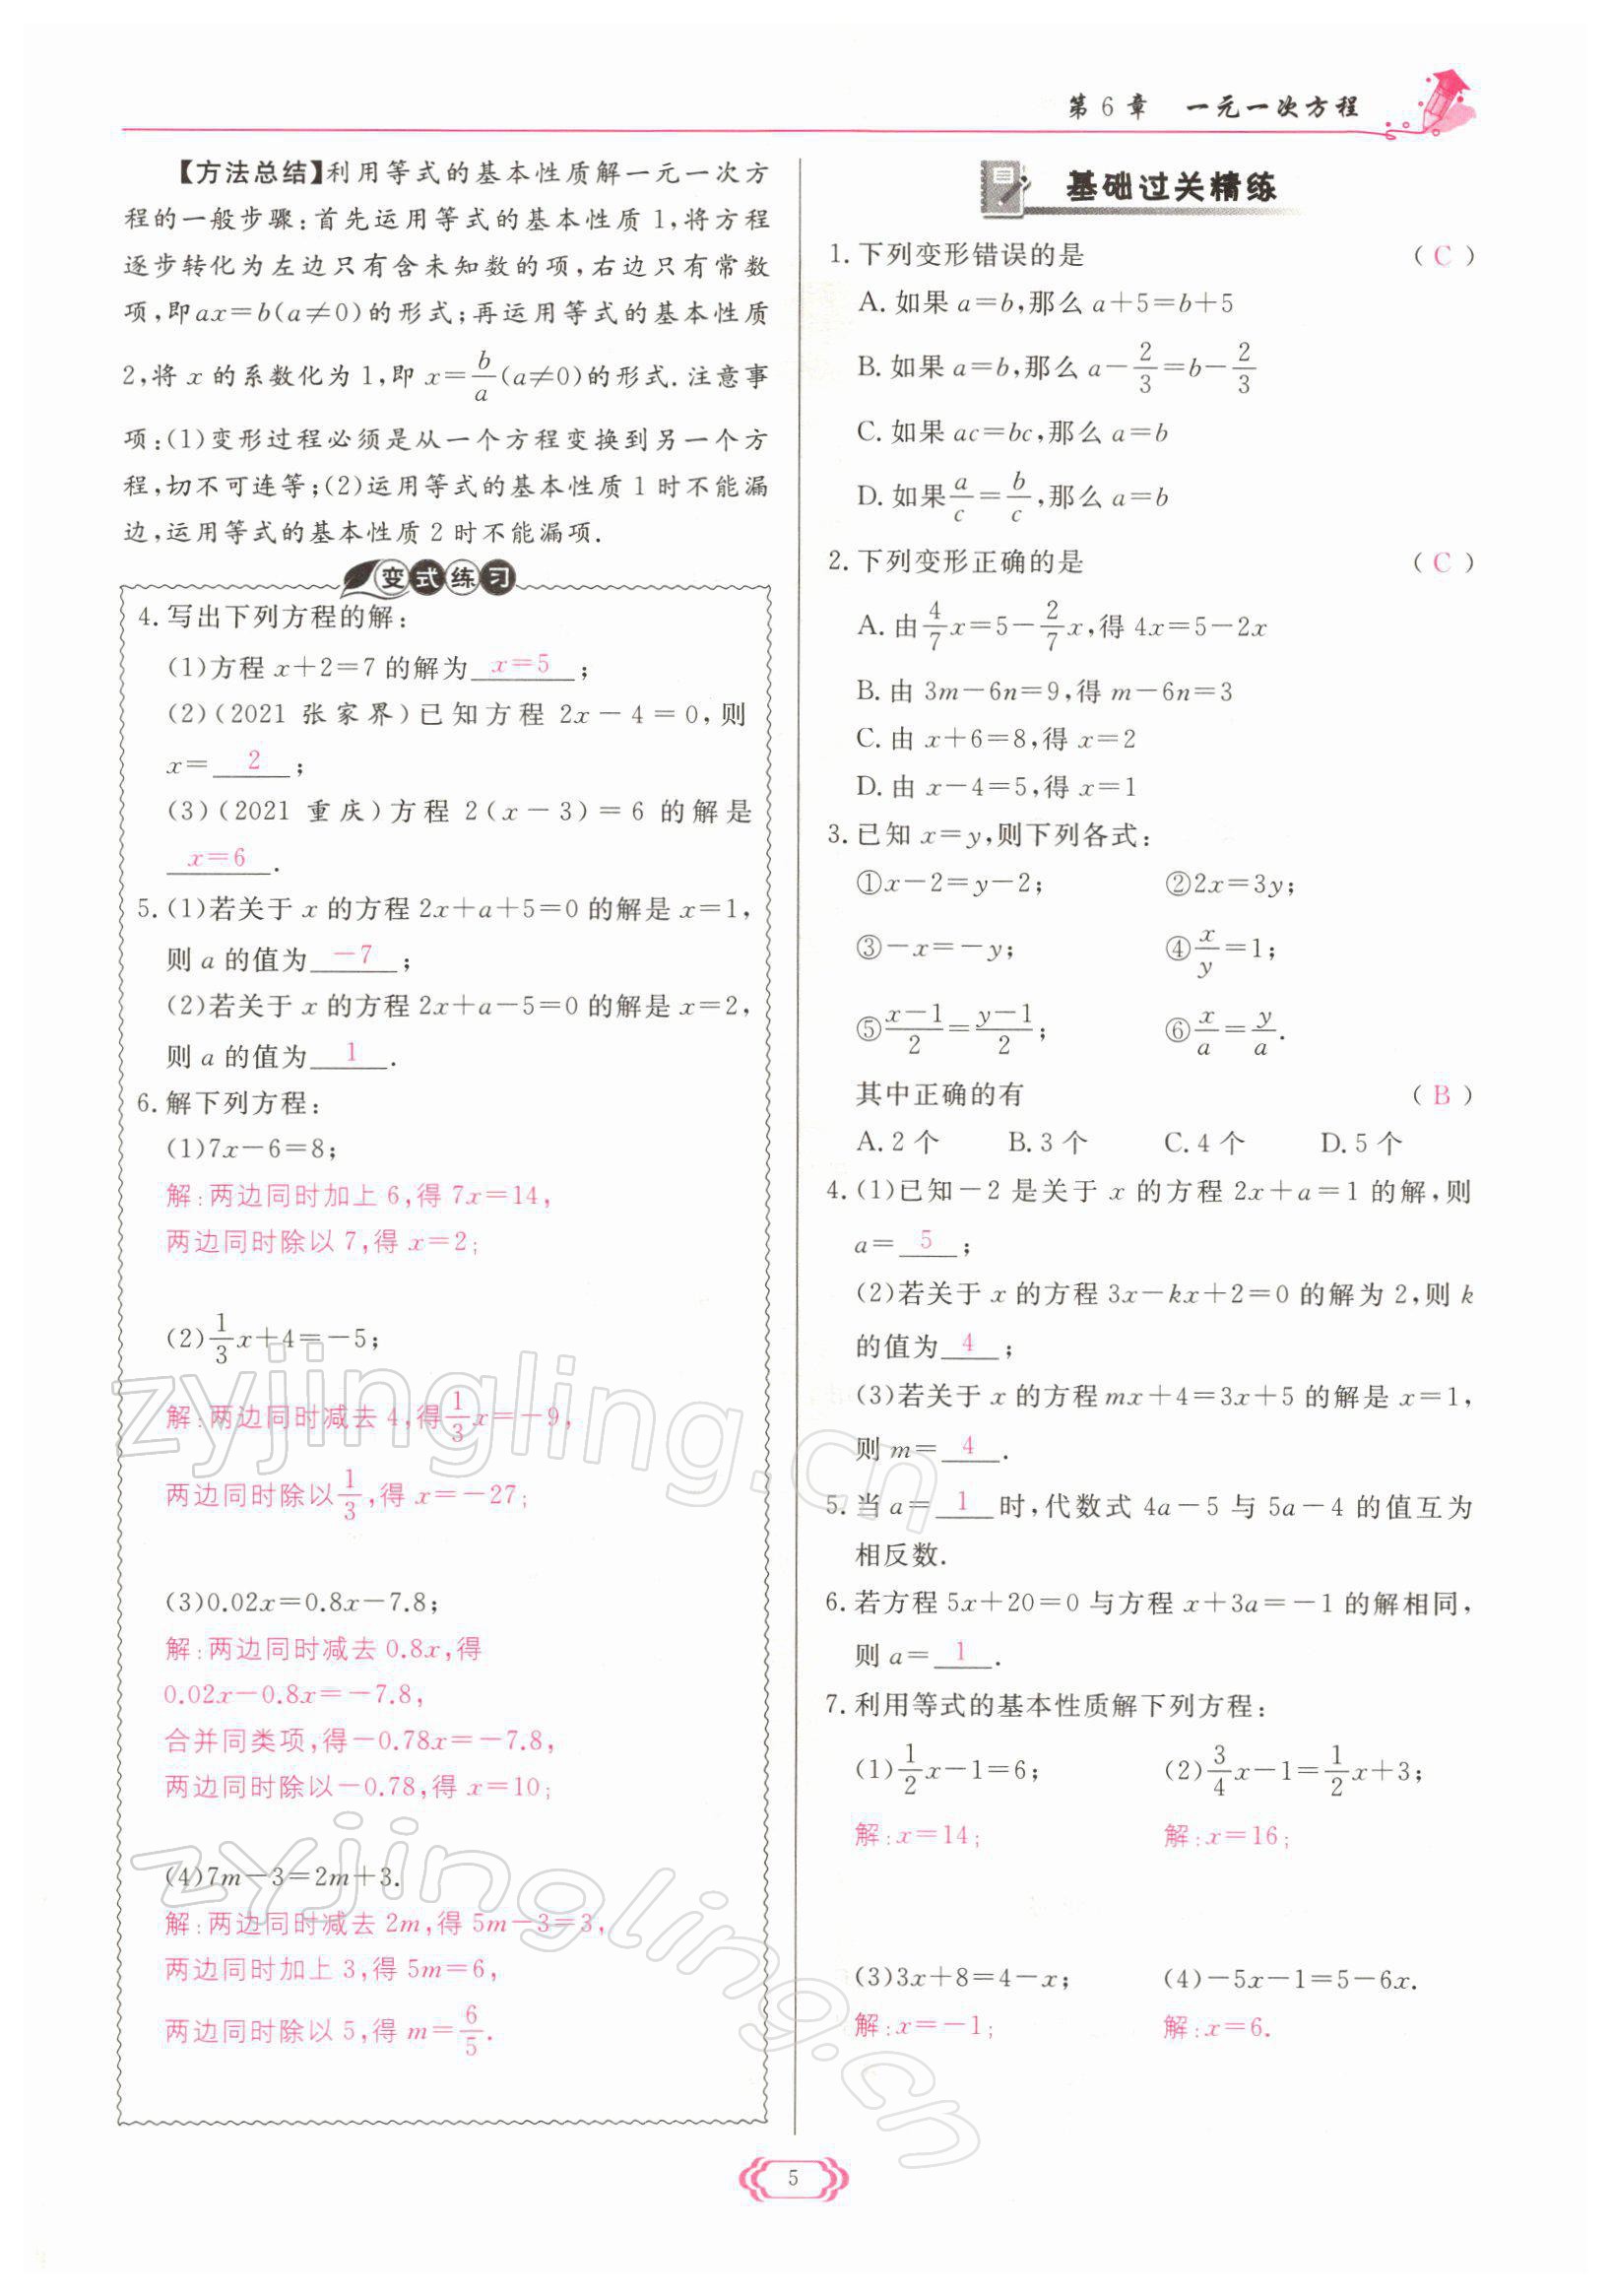 第 6 章　一元一次方程
【方法总结】利用等式的基本性质解一元一次方
程的一般步骤:首先运用等式的基本性质 1,将方程
逐步转化为左边只有含未知数的项,右边只有常数
项,即ax=b(a≠0)的形式;再运用等式的基本性质
2,将 x 的系数化为 1,即 x=b/a(a≠0)的形式.注意事
项:(1)变形过程必须是从一个方程变换到另一个方
程,切不可连等;(2)运用等式的基本性质 1 时不能漏
边,运用等式的基本性质 2 时不能漏项.
变式练习
4.写出下列方程的解:
(1)方程 x+2=7 的解为 x=5 ;
(2)(2021 张家界)已知方程 2x-4=0,则
x= 2 ;
(3)(2021 重庆)方程 2(x-3)=6 的解是
x=6 .
5.(1)若关于 x 的方程 2x+a+5=0 的解是 x=1,
则 a 的值为 -7 ;
(2)若关于 x 的方程 2x+a-5=0 的解是 x=2,
则 a 的值为 1 .
6.解下列方程:
(1)7x-6=8;
解:两边同时加上 6,得 7x=14,
两边同时除以 7,得 x=2;
(2)1/3x+4=-5;
解:两边同时减去 4,得1/3x=-9,
两边同时除以1/3,得 x=-27;
(3)0.02x=0.8x-7.8;
解:两边同时减去 0.8x,得
0.02x-0.8x=-7.8,
合并同类项,得-0.78x=-7.8,
两边同时除以-0.78,得 x=10;
(4)7m-3=2m+3.
解:两边同时减去 2m,得 5m-3=3,
两边同时加上 3,得 5m=6,
两边同时除以 5,得 m=6/5.
基础过关精练
1.下列变形错误的是 ( C )
A.如果 a=b,那么 a+5=b+5
B.如果 a=b,那么 a-2/3=b-2/3
C.如果 ac=bc,那么 a=b
D.如果a/c=b/c,那么 a=b
2.下列变形正确的是 ( C )
A.由4/7x=5-2/7x,得 4x=5-2x
B.由 3m-6n=9,得 m-6n=3
C.由 x+6=8,得 x=2
D.由 x-4=5,得 x=1
3.已知 x=y,则下列各式:
①x-2=y-2; ②2x=3y;
③-x=-y; ④x/y=1;
⑤(x-1)/2=(y-1)/2; ⑥x/a=y/a.
其中正确的有 ( B )
A.2 个 B.3 个 C.4 个 D.5 个
4.(1)已知-2 是关于 x 的方程 2x+a=1 的解,则
a= 5 ;
(2)若关于 x 的方程 3x-kx+2=0 的解为 2,则 k
的值为 4 ;
(3)若关于 x 的方程 mx+4=3x+5 的解是 x=1,
则 m= 4 .
5.当 a= 1 时,代数式 4a-5 与 5a-4 的值互为
相反数.
6.若方程 5x+20=0 与方程 x+3a=-1 的解相同,
则 a= 1 .
7.利用等式的基本性质解下列方程:
(1)1/2x-1=6; (2)3/4x-1=1/2x+3;
解:x=14; 解:x=16;
(3)3x+8=4-x; (4)-5x-1=5-6x.
解:x=-1; 解:x=6.
5
zyjingling.cn
zyjingling.cn